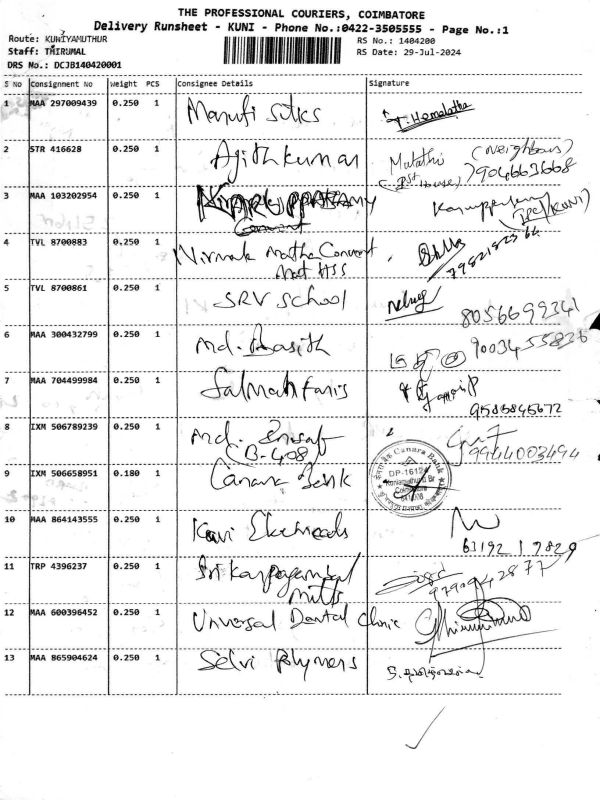 THE PROFESSIONAL COURIERS, COIMBATORE
Delivery Runsheet - KUNI - Phone No.:0422-3505555 - Page No.:1
Route: KUNIYAMUTHUR RS No.: 1404200
Staff: THIRUMAL RS Date: 29-Jul-2024
DRS No.: DCJB140420001
S No Consignment No Weight PCS Consignee Details Signature
1 MAA 297009439 0.250 1 Maruti Silks T. Hemalatha
2 STR 416628 0.250 1 Ajithkumar (Neighbour)
(1st House) 9046636668
3 MAA 103202954 0.250 1
4 TVL 8700883 0.250 1 Nirmala Matha Convent
Mat HSS 7982182564
5 TVL 8700861 0.250 1 SRV School
8056699341
6 MAA 300432799 0.250 1 Md. 9003455826
7 MAA 704499984 0.250 1 Salman Faris
9585845672
8 IXM 506789239 0.250 1 Md.
CB-408 9944003494
9 IXM 506658951 0.180 1 Canara Bank
Canara Bank
DP-16124
Kuniamuthur Br
Coimbatore
641008
10 MAA 864143555 0.250 1 Kavi
63192 19829
11 TRP 4396237 0.250 1 Sri Karpagambal
Mills 9790942877
12 MAA 600396452 0.250 1 Universal Dental Clinic
13 MAA 865904624 0.250 1 Selvi Polymers